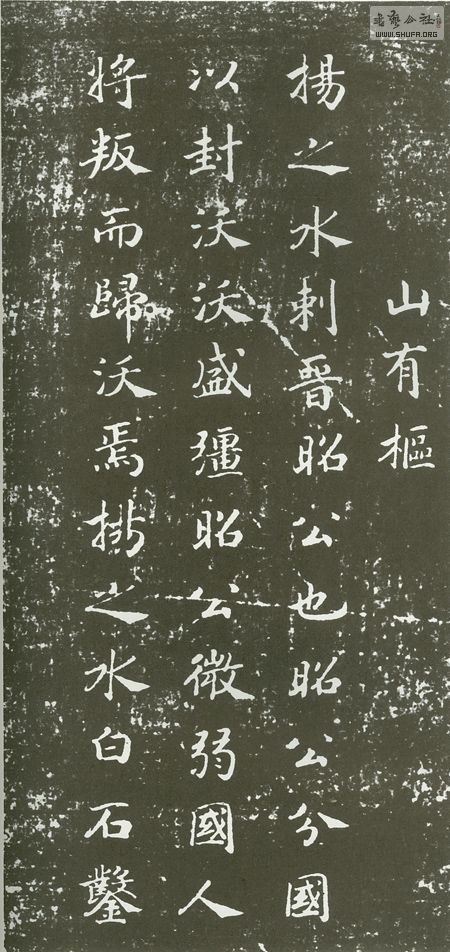 書藝公社
WWW.SHUFA.ORG
山有樞
揚之水刺晉昭公也昭公分國
以封沃沃盛彊昭公微弱國人
將叛而歸沃焉揚之水白石鑿